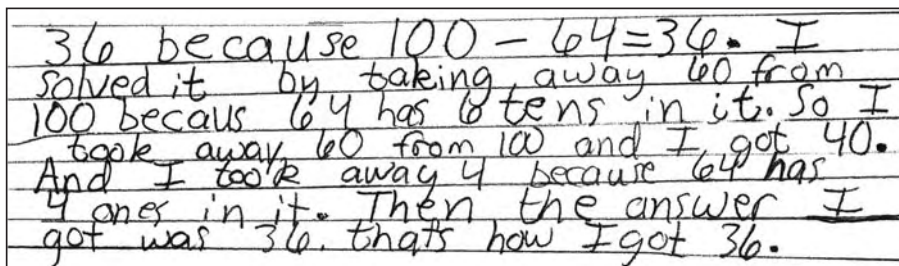 36 because 100 - 64 = 36. I
solved it by taking away 60 from
100 becaus 64 has 6 tens in it. So I
took away 60 from 100 and I got 40.
And I took away 4 because 64 has
4 ones in it. Then the answer I
got was 36. thats how I got 36.